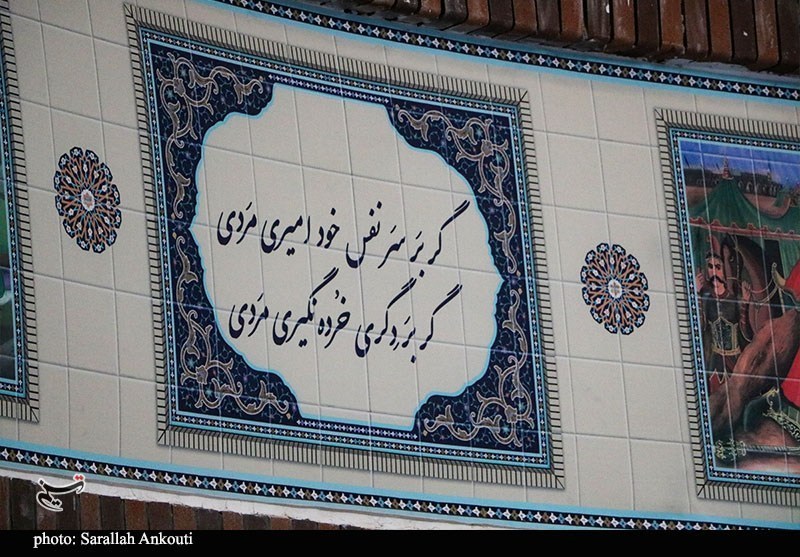 گر بَر سَرِ نفس خود امیری مَردی
گر بَر دِگری خُرده نگیری مَردی
تسنیم
photo: Sarallah Ankouti